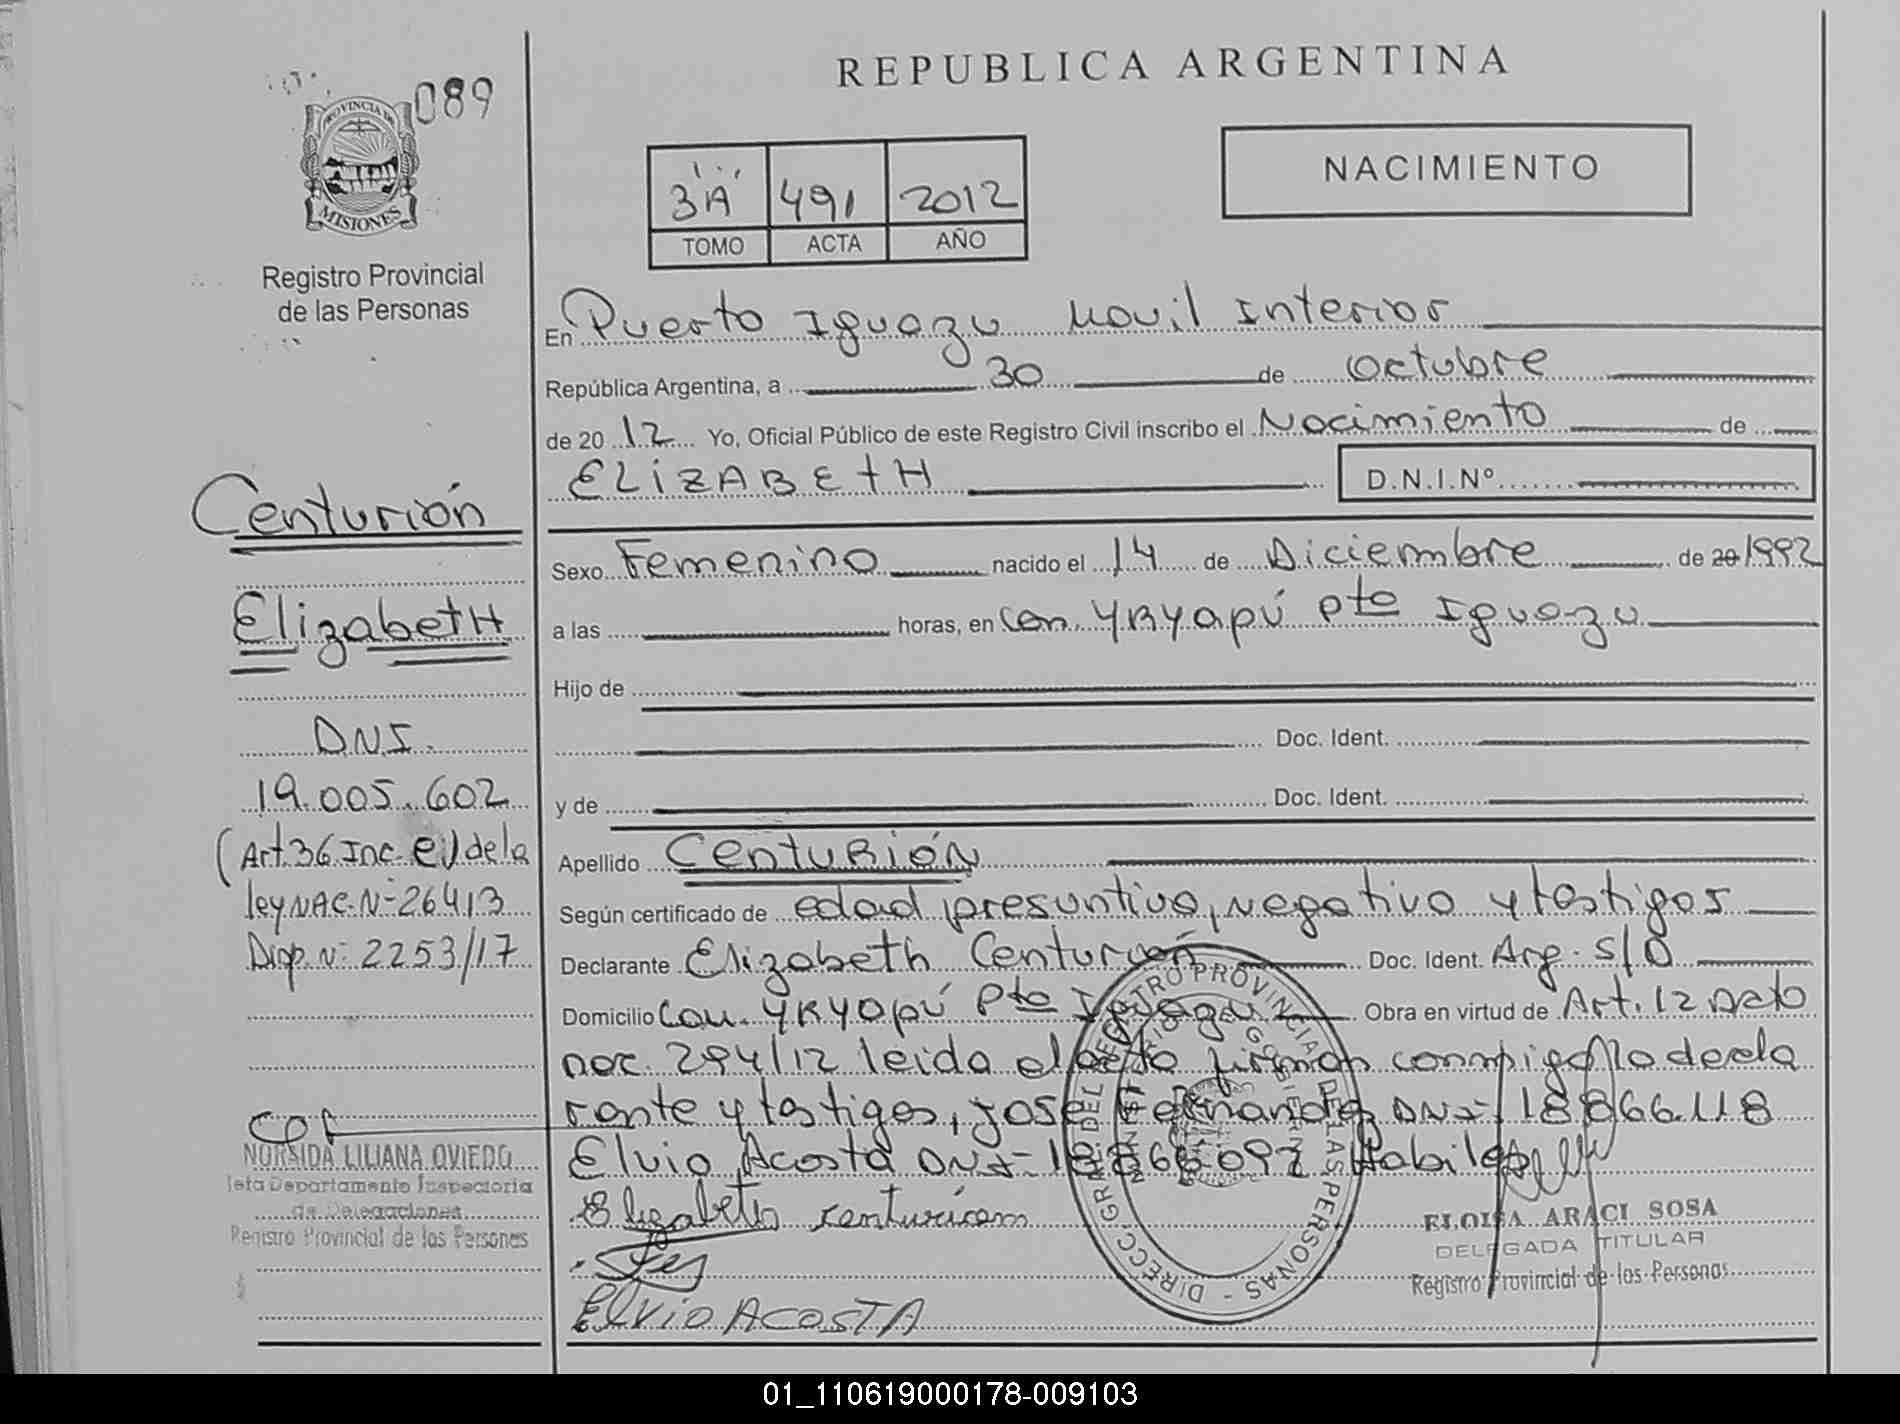 REPUBLICA ARGENTINA
089
PROVINCIA DE
MISIONES
Registro Provincial
de las Personas
3 "A" 491 2012
TOMO ACTA AÑO
NACIMIENTO
En Puerto Iguazu Movil Interior
República Argentina, a 30 de octubre
de 20 12 Yo, Oficial Público de este Registro Civil inscribo el Nacimiento de
ELIZABEtH D.N.I.Nº
Sexo Femenino nacido el 14 de Diciembre de 20 1992
a las horas, en Com. YRYapú Pto Iguazu
Hijo de
Doc. Ident.
y de Doc. Ident.
Apellido CENTURIÓN
Según certificado de edad presuntiva, negativo y testigos
Declarante Elizabeth Centurión Doc. Ident. Arg. S/D
Domicilio Com. YRYapú Pto Iguazu Obra en virtud de Art. 12 Dcto
nac. 294/12 leida el acta firman conmigo la decla
rante y testigos, José Fernandez DNI- 18866.118
Elvio Acosta DNI- Habiles
Elizabeth centurion
ELVIO ACOSTA
DIRECC. GRAL. DEL REGISTRO PROVINCIAL DE LAS PERSONAS
MINISTERIO DE GOBIERNO
ELOISA ARACI SOSA
DELEGADA TITULAR
Registro Provincial de las Personas
Centurión
Elizabeth
D.N.I.
19.005.602
(Art.36 Inc. e) de la
ley NAC. Nº 26413
Disp. Nº 2253/17
NORSIDA LILIANA OVIEDO
Jefa Departamento Inspectoria
de Delegaciones
Registro Provincial de las Personas
01_110619000178-009103